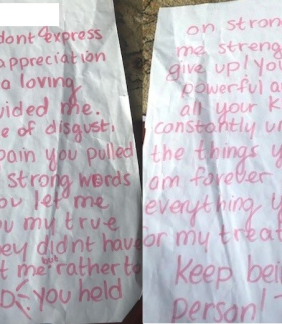 dont express
appreciation
a loving
vided me.
e of disgust,
pain you pulled
strong words
ou let me
u my true
ey didnt have
t me but rather to
D: you held
on stron
me streng
give up! You
powerful a
all your k
constantly u
the things y
am forever
everything y
or my treat
Keep bei
person!